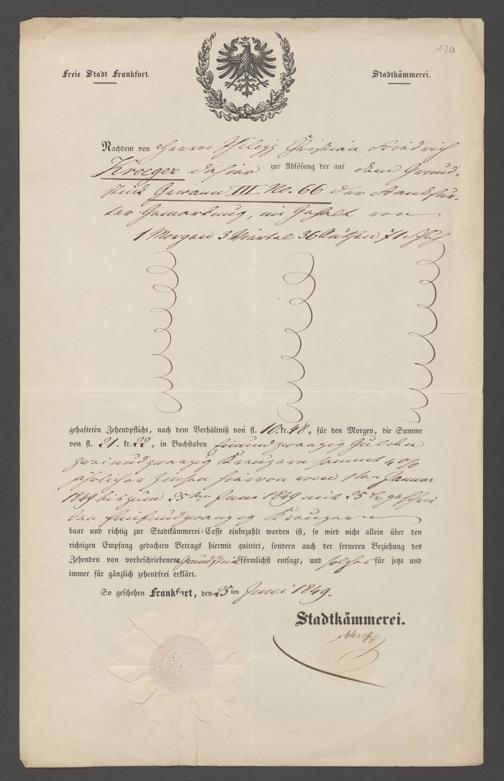 120
Freie Stadt Frankfurt. Stadtkämmerei.
Nachdem von Herrn Philipp Christian Friedrich
Kroeger dahier zur Ablösung der auf dem Grund-
stück Gewann III No. 66 der Frankfur-
ter Gemarkung, im Gehalt von
1 Morgen 3 Viertel 36 Ruthen 71 Schuh
gehafteten Zehendpflicht, nach dem Verhältniß von fl. 10. kr. 48. für den Morgen, die Summe
von fl. 21. kr. 22. in Buchstaben Einundzwanzig Gulden
zweiundzwanzig Kreuzern sammt 4 %
jährlicher Zinsen hiervon vom 1ten Januar
1849 bis zum 25ten Juni 1849 mit 25
fünfundzwanzig Kreuzern
baar und richtig zur Stadtkämmerei-Casse einbezahlt worden ist, so wird nicht allein über den
richtigen Empfang gedachten Betrags hiermit quittirt, sondern auch der ferneren Beziehung des
Zehenden von vorbeschriebenem Grundstück förmlichst entsagt, und solches für jetzt und
immer für gänzlich zehendfrei erklärt.
So geschehen Frankfurt, den 25ten Juni 1849.
Stadtkämmerei.